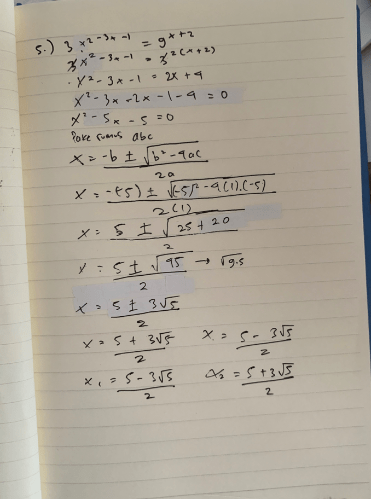 5.) 3^(x²-3x-1) = 9^(x+2)
3^(x²-3x-1) = 3^(2(x+2))
x²-3x-1 = 2x+4
x²-3x-2x-1-4 = 0
x²-5x-5 = 0
Pake rumus abc
x = (-b ± √(b²-4ac))/2a
x = (-(-5) ± √((-5)²-4.(1).(-5)))/2(1)
x = (5 ± √(25+20))/2
x = (5 ± √45)/2 → √9.5
x = (5 ± 3√5)/2
x = (5+3√5)/2 x = (5-3√5)/2
x₁ = (5-3√5)/2 x₂ = (5+3√5)/2